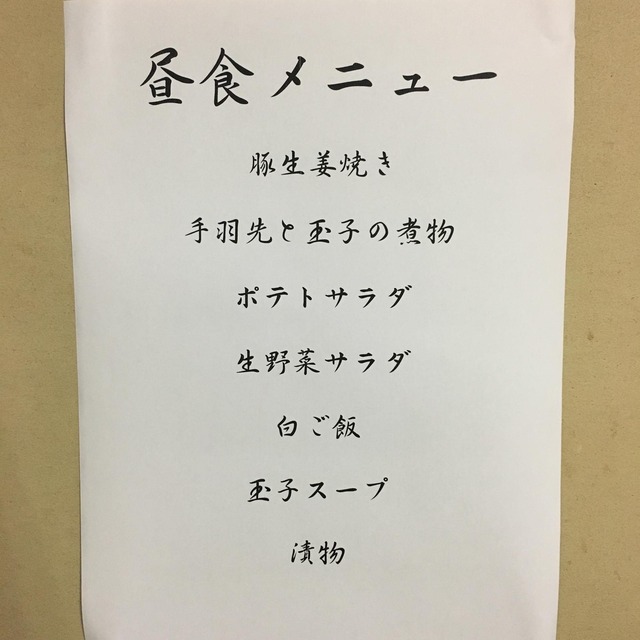 昼食メニュー
豚生姜焼き
手羽先と玉子の煮物
ポテトサラダ
生野菜サラダ
白ご飯
玉子スープ
漬物